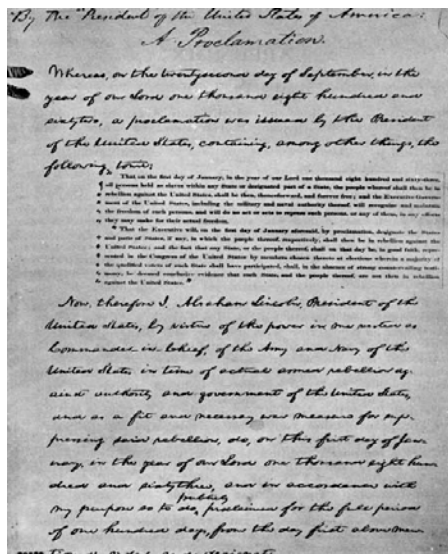 By the President of the United States of America:
A Proclamation.
Whereas, on the twentysecond day of September, in the
year of our Lord one thousand eight hundred and
sixtytwo, a proclamation was issued by the President
of the United States, containing, among other things, the
following, to wit:
" That on the first day of January, in the year of our Lord one thousand eight hundred and sixty-three,
all persons held as slaves within any State or designated part of a State, the people whereof shall then be in
rebellion against the United States, shall be then, thenceforward, and forever free; and the Executive Govern-
ment of the United States, including the military and naval authority thereof, will recognize and maintain
the freedom of such persons, and will do no act or acts to repress such persons, or any of them, in any efforts
they may make for their actual freedom.
" That the Executive will, on the first day of January aforesaid, by proclamation, designate the States
and parts of States, if any, in which the people thereof, respectively, shall then be in rebellion against the
United States; and the fact that any State, or the people thereof, shall on that day be, in good faith, repre-
sented in the Congress of the United States by members chosen thereto at elections wherein a majority of
the qualified voters of such State shall have participated, shall, in the absence of strong countervailing testi-
mony, be deemed conclusive evidence that such State, and the people thereof, are not then in rebellion
against the United States."
Now, therefore I, Abraham Lincoln, President of the
United States, by virtue of the power in me vested as
Commander-in-Chief, of the Army and Navy of the
United States in time of actual armed rebellion ag-
ainst authority and government of the United States,
and as a fit and necessary war measure for sup-
pressing said rebellion, do, on this first day of Jan-
uary, in the year of our Lord one thousand eight hun-
dred and sixtythree, and in accordance with
my purpose so to do, publicly proclaimed for the full period
of one hundred days, from the day first above men-